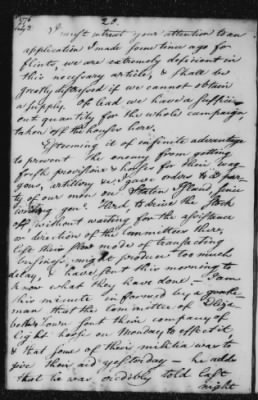 20.
I must intreat your attention to an
application I made some time ago for
flints, we are extremely deficient in
this necessary article, & shall be
greatly distressed if we cannot obtain
a supply. Of lead we have a suffici-
ent quantity for the whole campaign
taken off the houses here.
Esteeming it of infinite advantage
to prevent the enemy from getting
fresh provisions & horses for their wag-
gons, artillery &c I gave orders to a par-
ty of our men on Staten Island, since
writing you Herd to drive the Stock
off without waiting for the assistance
or direction of the Committees there,
lest their slow mode of transacting
business, might produce too much
delay, & have sent this morning to
know what they have done. I am
this minute informed by a gentle-
man that the committee of Eliza
beth Town sent their company of
light horse on Monday to effect it
& that some of their militia was to
give their aid yesterday — he adds
that he was credibly told last
night